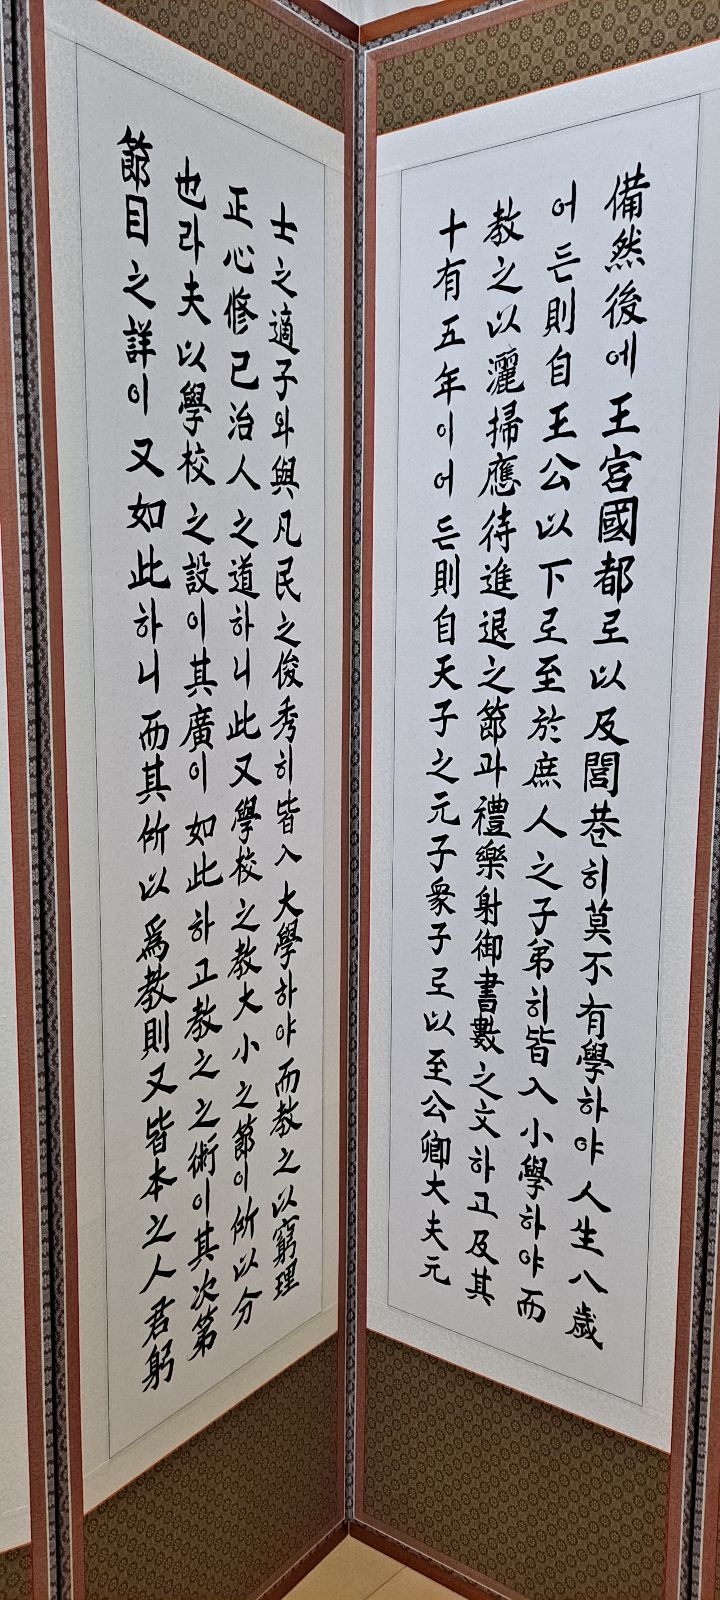 備然後에王宮國都로以及閭巷히莫不有學하야人生八歲
어든則自王公以下로至於庶人之子弟히皆入小學하야而
教之以灑掃應待進退之節과禮樂射御書數之文하고及其
十有五年이어든則自天子之元子衆子로以至公卿大夫元
士之適子와與凡民之俊秀히皆入大學하야而教之以窮理
正心修己治人之道하니此又學校之教大小之節이所以分
也라夫以學校之設이其廣이如此하고教之之術이其次第
節目之詳이又如此하니而其所以爲教則又皆本之人君躬